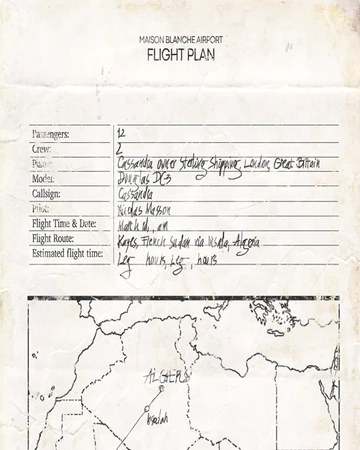 MAISON BLANCHE AIRPORT
FLIGHT PLAN
Passengers: 12
Crew: 2
Cassandra owner Sterling Shipping, London, Great Britain
Model: Douglas DC3
Callsign: Cassandra
Nicolas Masson
Flight Time & Date: March
Flight Route: Kayes, French Sudan via Algeria
Estimated flight time: Leg hours, Leg , hours
ALGIERS